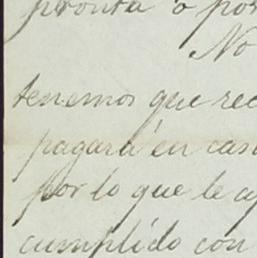 pronta o por
No
tenemos que rec
pagará en cas
por lo que le a
cumplido con